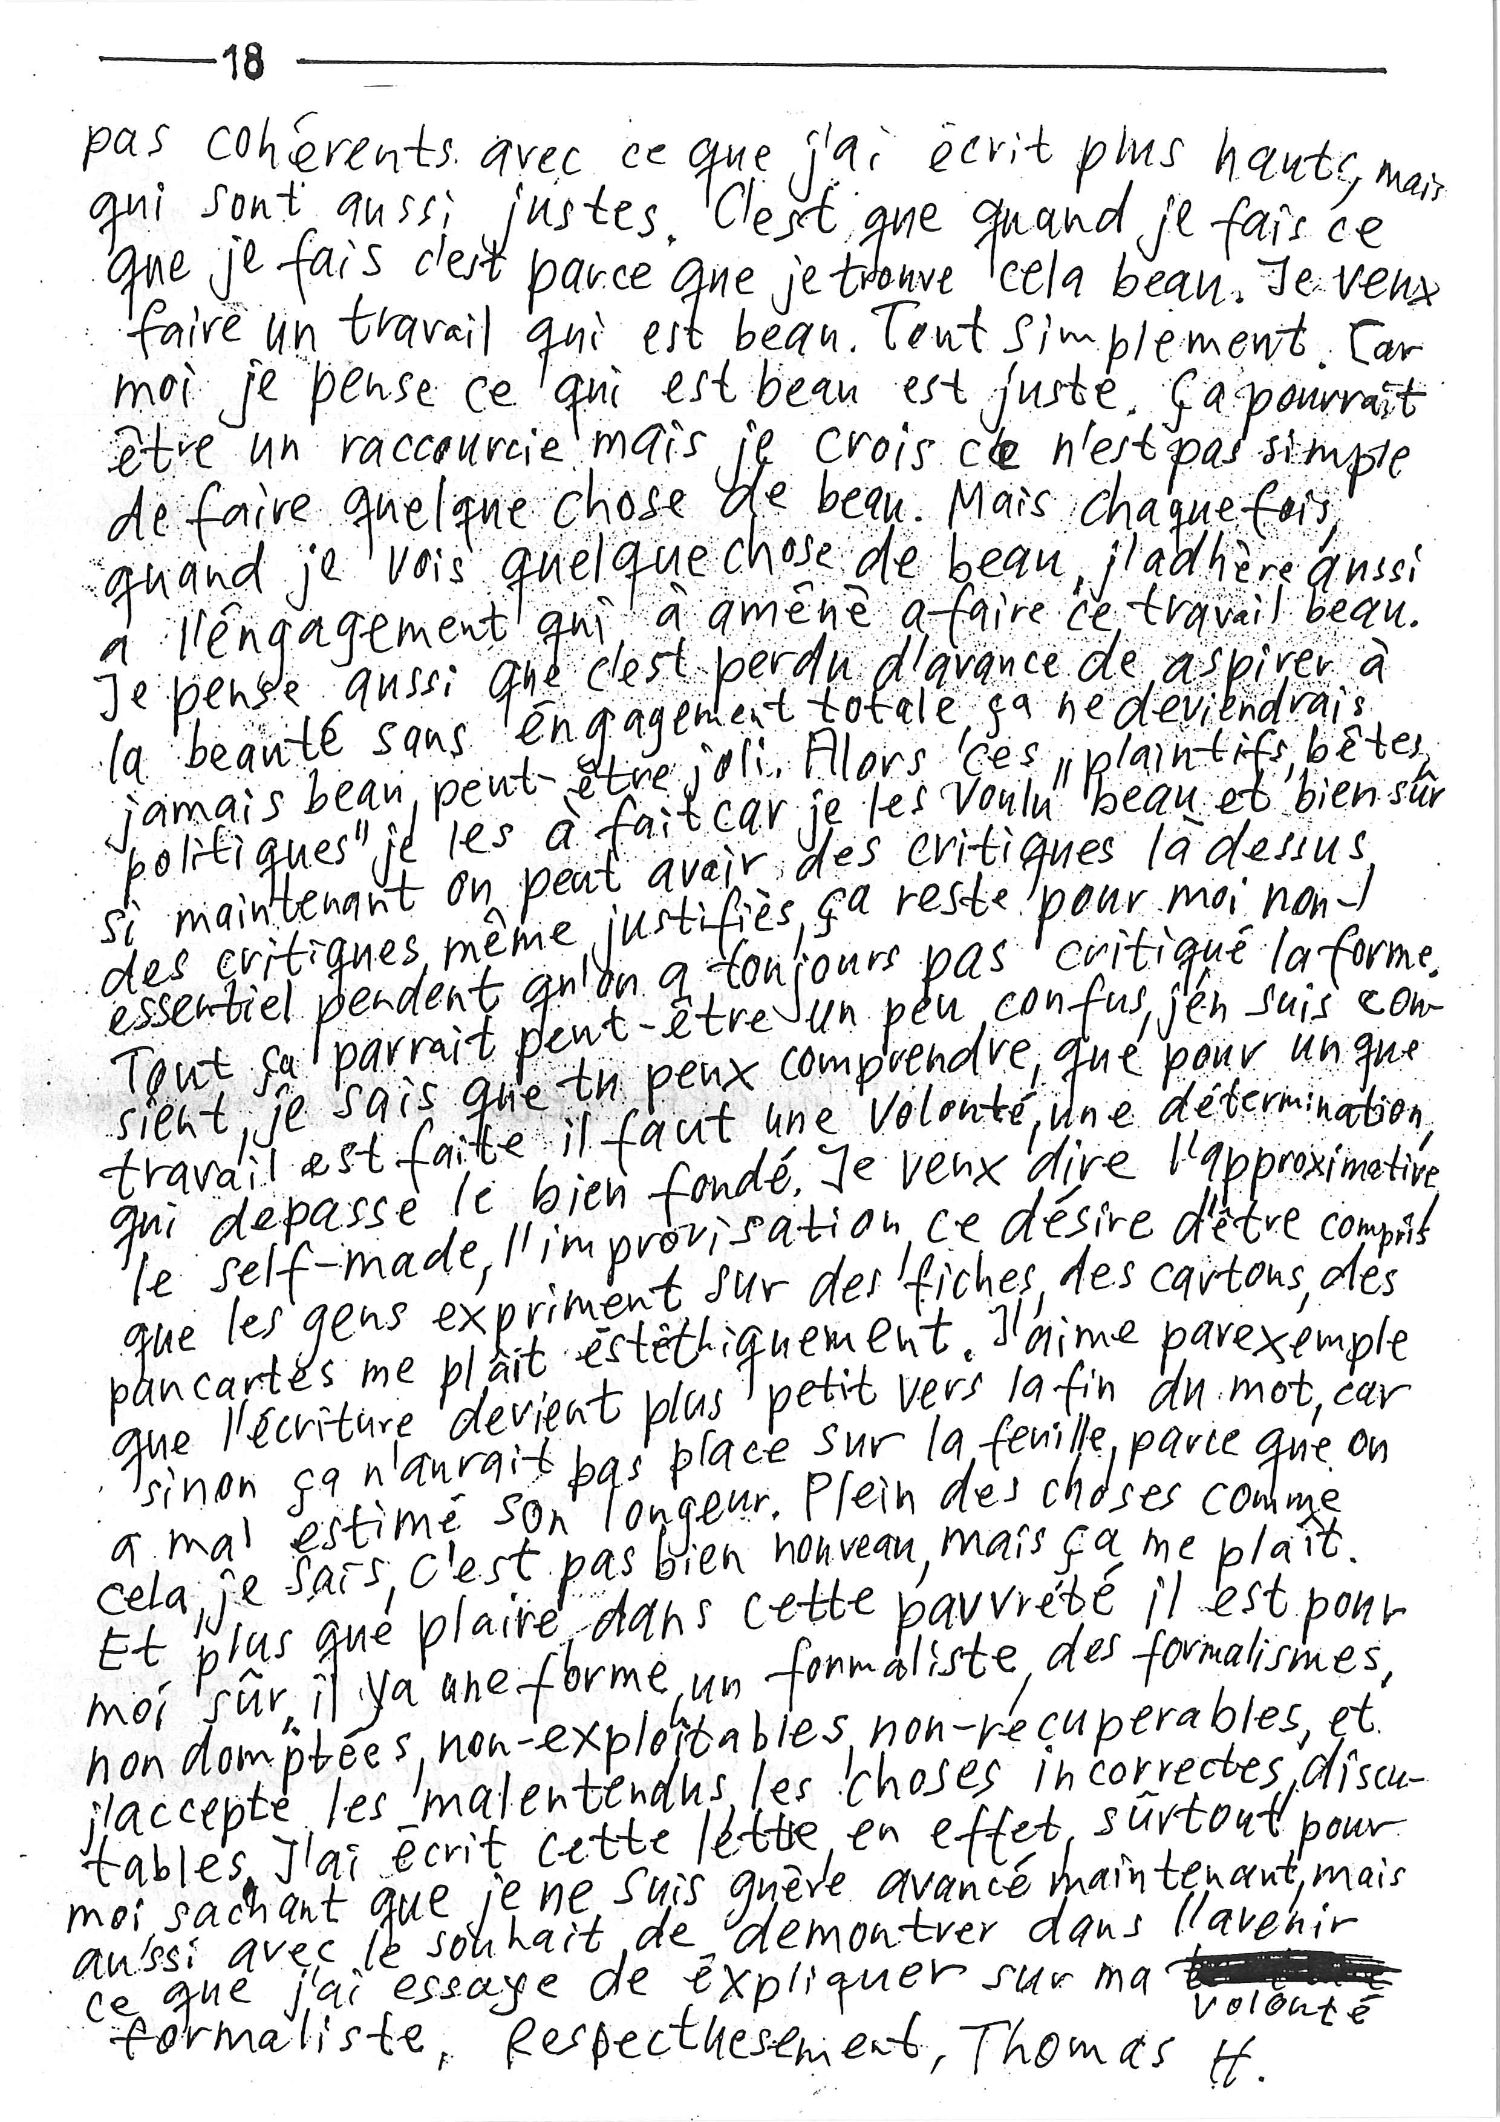 18
pas cohérents avec ce que j'ai écrit plus hauts, mais
qui sont aussi justes. C'est que quand je fais ce
que je fais c'est parce que je trouve cela beau. Je veux
faire un travail qui est beau. Tout simplement. Car
moi je pense ce qui est beau est juste. Ça pourrait
être un raccourcie mais je crois ce n'est pas simple
de faire quelque chose de beau. Mais chaque fois,
quand je vois quelque chose de beau, j'adhère aussi
a l'éngagement qui à améné a faire ce travail beau.
Je pense aussi que c'est perdu d'avance de aspirer à
la beauté sans éngagement totale, ça ne deviendrais
jamais beau, peut-être joli. Alors ces "plaintifs, bêtes,
politiques" je les à fait car je les voulu beau et bien sûr
si maintenant on peut avoir des critiques là dessus,
des critiques même justifiès, ça reste pour moi non-
essentiel pendent qu'on a toujours pas critiqué la forme.
Tout ça parrait peut-être un peu confus, j'én suis con-
sient, je sais que tu peux comprendre, que pour un que
travail est faite il faut une volonté, une détermination,
qui depasse le bien fondé. Je veux dire l'approximative,
le self-made, l'improvisation, ce désire d'être compris
que les gens expriment sur des fiches, des cartons, des
pancartes me plâit éstéthiquement. J'aime par exemple
que l'écriture devient plus petit vers la fin du mot, car
sinon ça n'aurait pas place sur la feuille, parce que on
a mal estimé son longeur. Plein des choses comme
cela, je sais, c'est pas bien nouveau, mais ça me plaît.
Et plus que plaire, dans cette pauvrété il est pour
moi sûr, il ya une forme, un formaliste, des formalismes,
non domptées, non-exploîtables, non-récuperables, et
j'accepte les malentendus, les choses incorrectes, discu-
tables. J'ai écrit cette lettre, en effet, sûrtout pour
moi sachant que je ne suis guère avancé maintenant, mais
aussi avec le souhait de demontrer dans l'avenir
ce que j'ai essaye de éxpliquer sur ma
volonté
formaliste. Respectuesement, Thomas H.